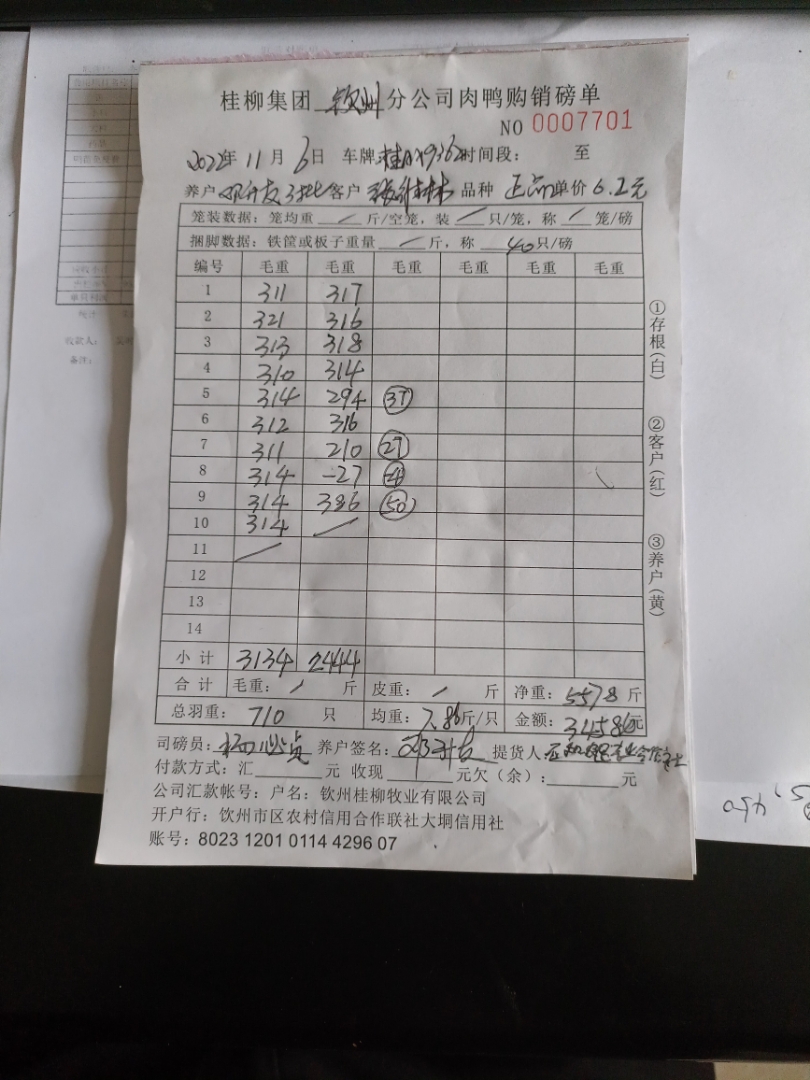 桂柳集团 钦州 分公司肉鸭购销磅单
NO 0007701
2022年 11月 6日 车牌 时间段: 至
养户 客户 品种 正品 单价 6.2元
笼装数据: 笼均重 / 斤/空笼, 装 / 只/笼, 称 / 笼/磅
捆脚数据: 铁筐或板子重量 / 斤, 称 40只/磅
编号 毛重 毛重 毛重 毛重 毛重 毛重
1 311 317
2 321 316
3 313 318
4 310 314
5 314 294 37
6 312 316
7 311 210 27
8 314 -27
9 314 386 50
10 314 /
11 /
12
13
14
小计 3134 2444
合计 毛重: / 斤 皮重: / 斤 净重: 5578 斤
总羽重: 710 只 均重: 7.86斤/只 金额: 34586元
司磅员: 养户签名: 提货人:
付款方式: 汇 元 收现 元欠(余): 元
公司汇款帐号: 户名: 钦州桂柳牧业有限公司
开户行: 钦州市区农村信用合作联社大垌信用社
账号: 8023 1201 0114 4296 07
①存根(白)
②客户(红)
③养户(黄)